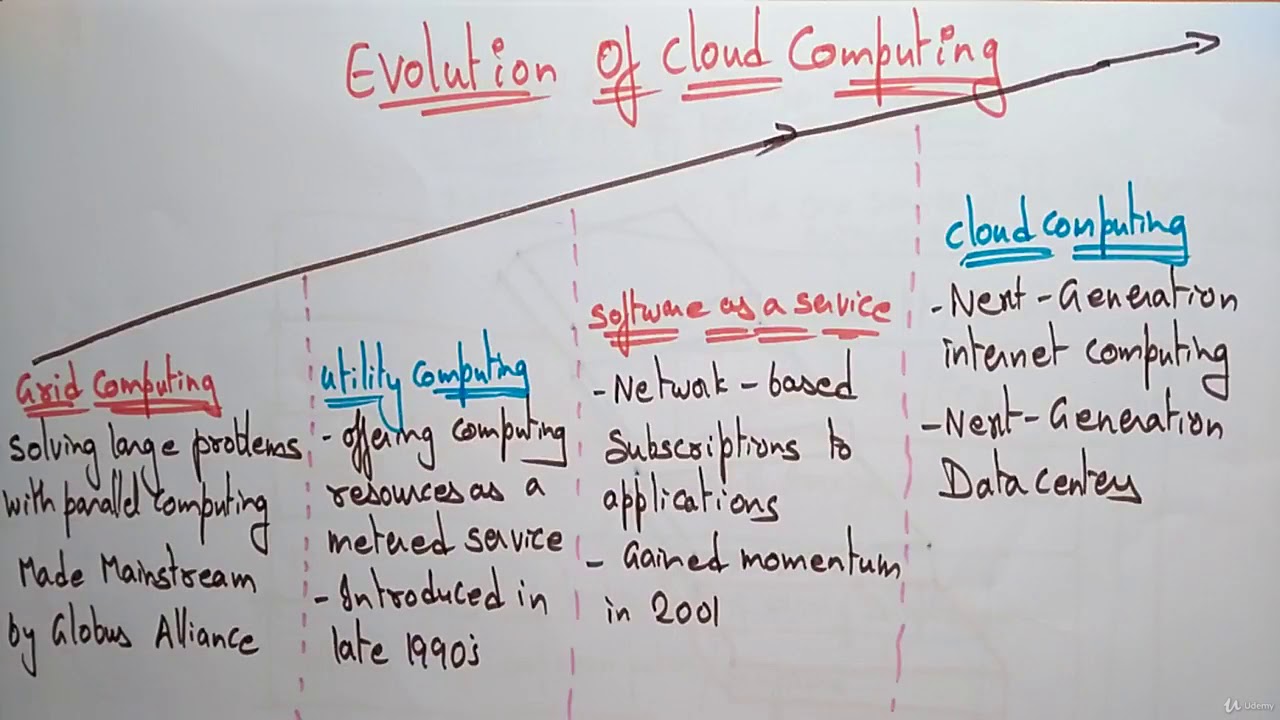 Evolution Of Cloud Computing
Grid Computing
Solving large problems
with parallel Computing
Made Mainstream
by Globus Alliance
utility Computing
- offering computing
resources as a
metered service
- Introduced in
late 1990's
software as a service
- Network - based
Subscriptions to
applications
- Gained momentum
in 2001
cloud computing
- Next - Generation
internet computing
- Next - Generation
Data centers
Udemy